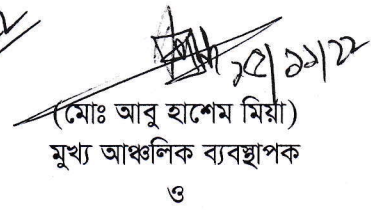 ১৫/১১/২২
(মোঃ আবু হাশেম মিয়া)
মুখ্য আঞ্চলিক ব্যবস্থাপক
ও